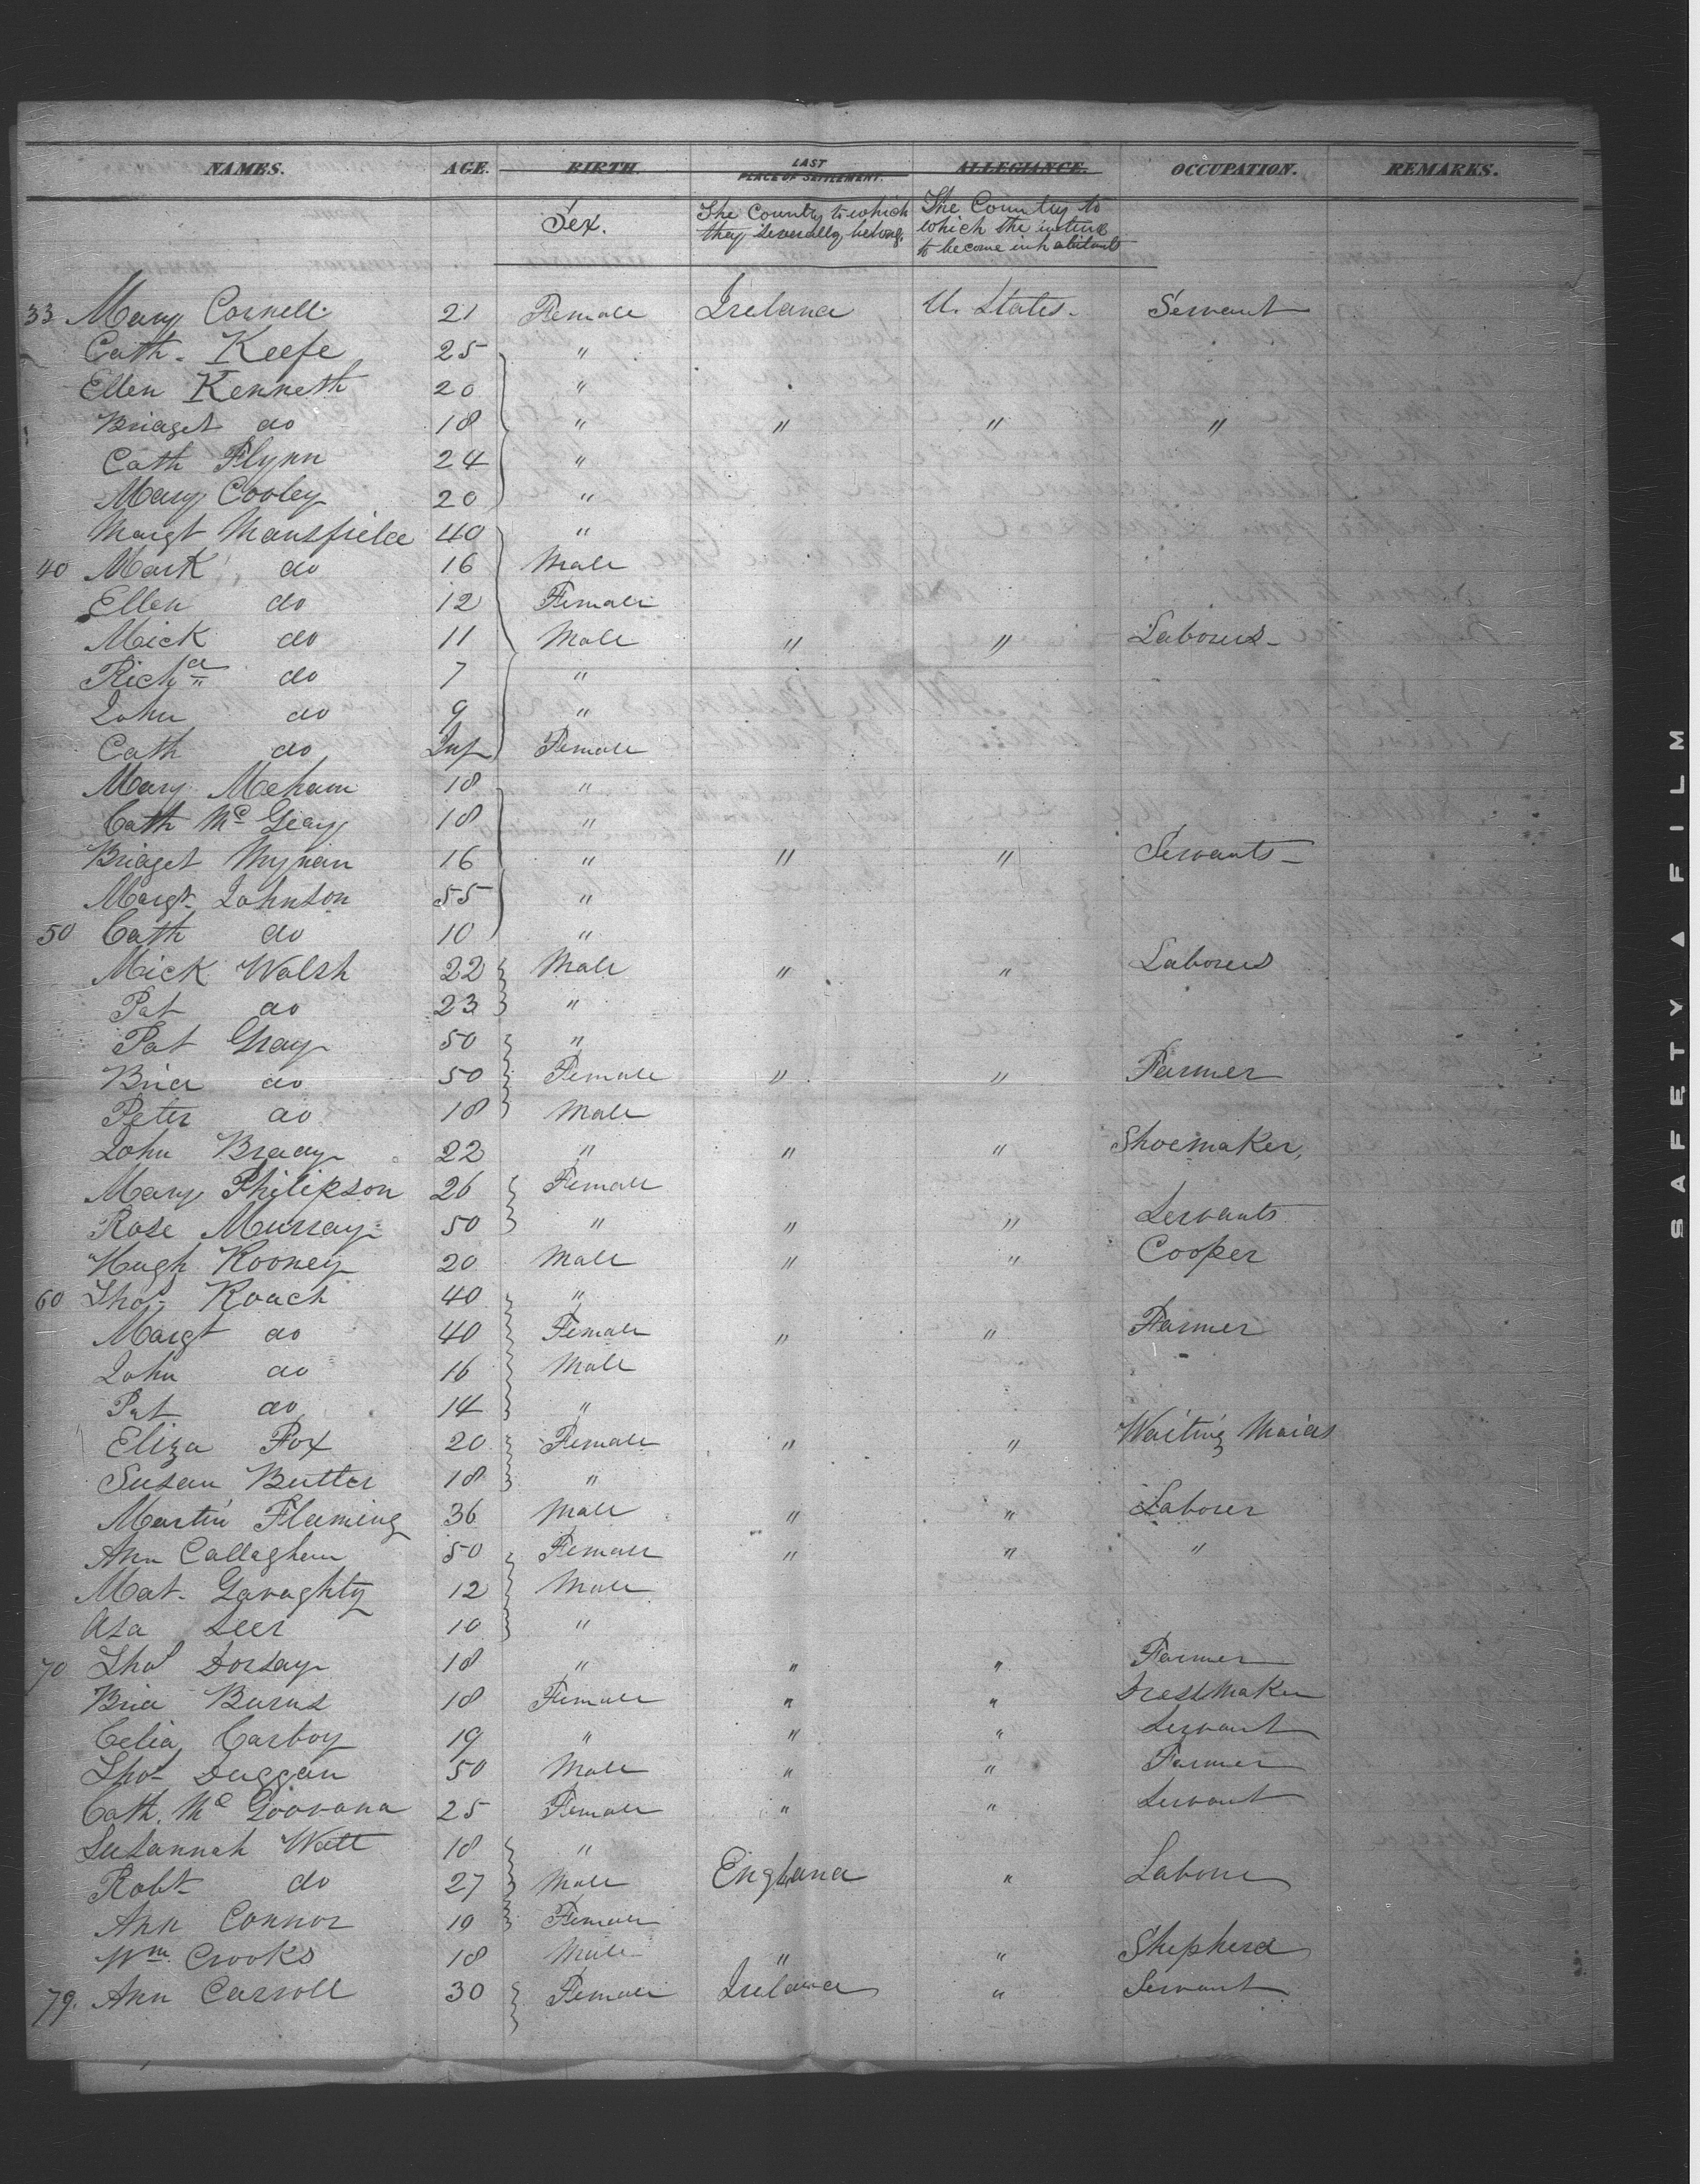 NAMES. AGE. BIRTH. LAST PLACE OF SETTLEMENT. ALLEGIANCE. OCCUPATION. REMARKS.
Sex. The Country to which they severally belong. The Country to which the intend to become inhabitants
33 Mary Cornell 21 Female Ireland U. States. Servant
Cath. Keefe 25 "
Ellen Kenneth 20 "
Bridget do 18 " " " "
Cath Flynn 24 "
Mary Cooley 20 "
Margt Mansfield 40 "
40 Mark do 16 Male
Ellen do 12 Female
Mick do 11 Male " " Laborers
Richd do 7 "
John do 9 "
Cath do Inf Female
Mary Mehan 18 "
Cath Mc Geary 18 "
Bridget 16 " " " Servants
Margt Johnson 55 "
50 Cath do 10 "
Mick Walsh 22 Male " " Laborers
Pat do 23 "
Pat Gray 50 "
Brid do 50 Female " " Farmer
Peter do 18 Male
John Brady 22 " " " Shoemaker,
Mary Philipson 26 Female
Rose Murray 50 " " " Servants
Hugh Rooney 20 Male " " Cooper
60 Thos Roach 40 "
Margt do 40 Female " " Farmer
John do 16 Male
Pat do 14 "
Eliza Fox 20 Female " " Waiting Maids
Susan Butler 18 "
Martin Fleming 36 Male " " Laborer
Ann Callaghan 50 Female " " "
Mat. Garaghty 12 Male
Asa Seer 10 "
70 Thos Dorsay 18 " " " Farmer
Brid Burns 18 Female " " Dressmaker
Celia Carboy 19 " " " Servant
Thos Duggan 50 Male " " Farmer
Cath. Mc Goovana 25 Female " " Servant
Susannah Watt 18 "
Robt do 27 Male England " Laborer
Ann Connor 19 Female
Wm. Crooks 18 Male " " Shepherd
79. Ann Carroll 30 Female Ireland " Servant
SAFETY ▲ FILM